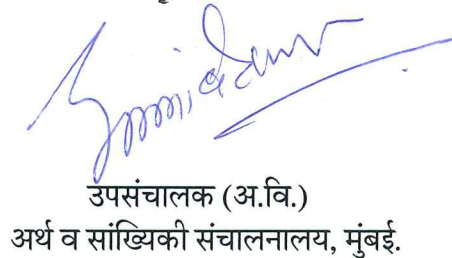 उपसंचालक (अ.वि.)
अर्थ व सांख्यिकी संचालनालय, मुंबई.